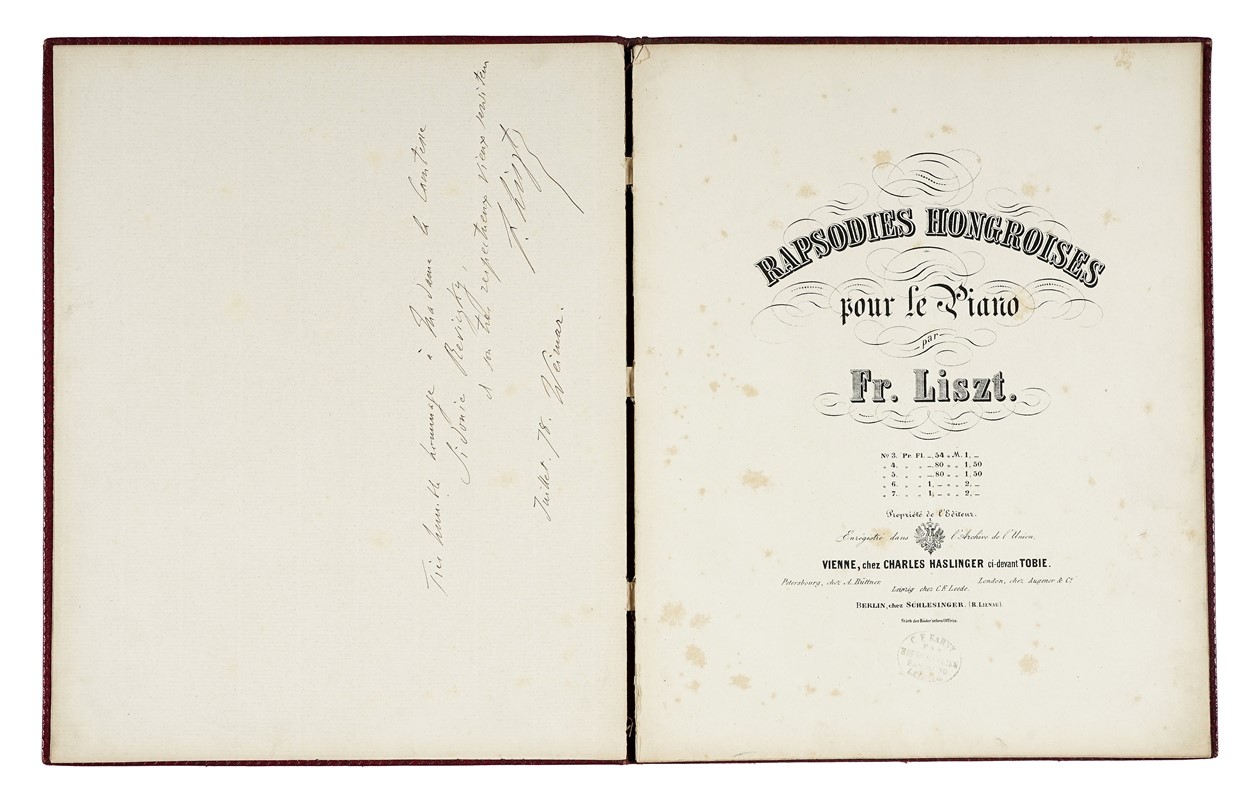 Très humble hommage à Madame la Comtesse
Sidonie Reviczky,
d' son très respectueux vieux serviteur
F. Liszt
Juillet. 78. Weimar.
RAPSODIES HONGROISES
pour le Piano
par
Fr. Liszt.
No 3. Pr. Fl. _,54 „ M. 1, _
„ 4. „ „ _,80 „ „ 1, 50
„ 5. „ „ _,80 „ „ 1, 50
„ 6. „ „ 1, _ „ „ 2, _
„ 7. „ „ 1, _ „ „ 2, _
Propriété de l'Editeur.
Enregistré dans l'Archive de l'Union.
VIENNE, chez CHARLES HASLINGER ci-devant TOBIE.
Petersbourg, chez A. Büttner. London, chez Augener & Co.
Leipzig chez C.F. Leede.
BERLIN, chez SCHLESINGER. (R. LIENAU).
Stich der Röder'schen Officin.